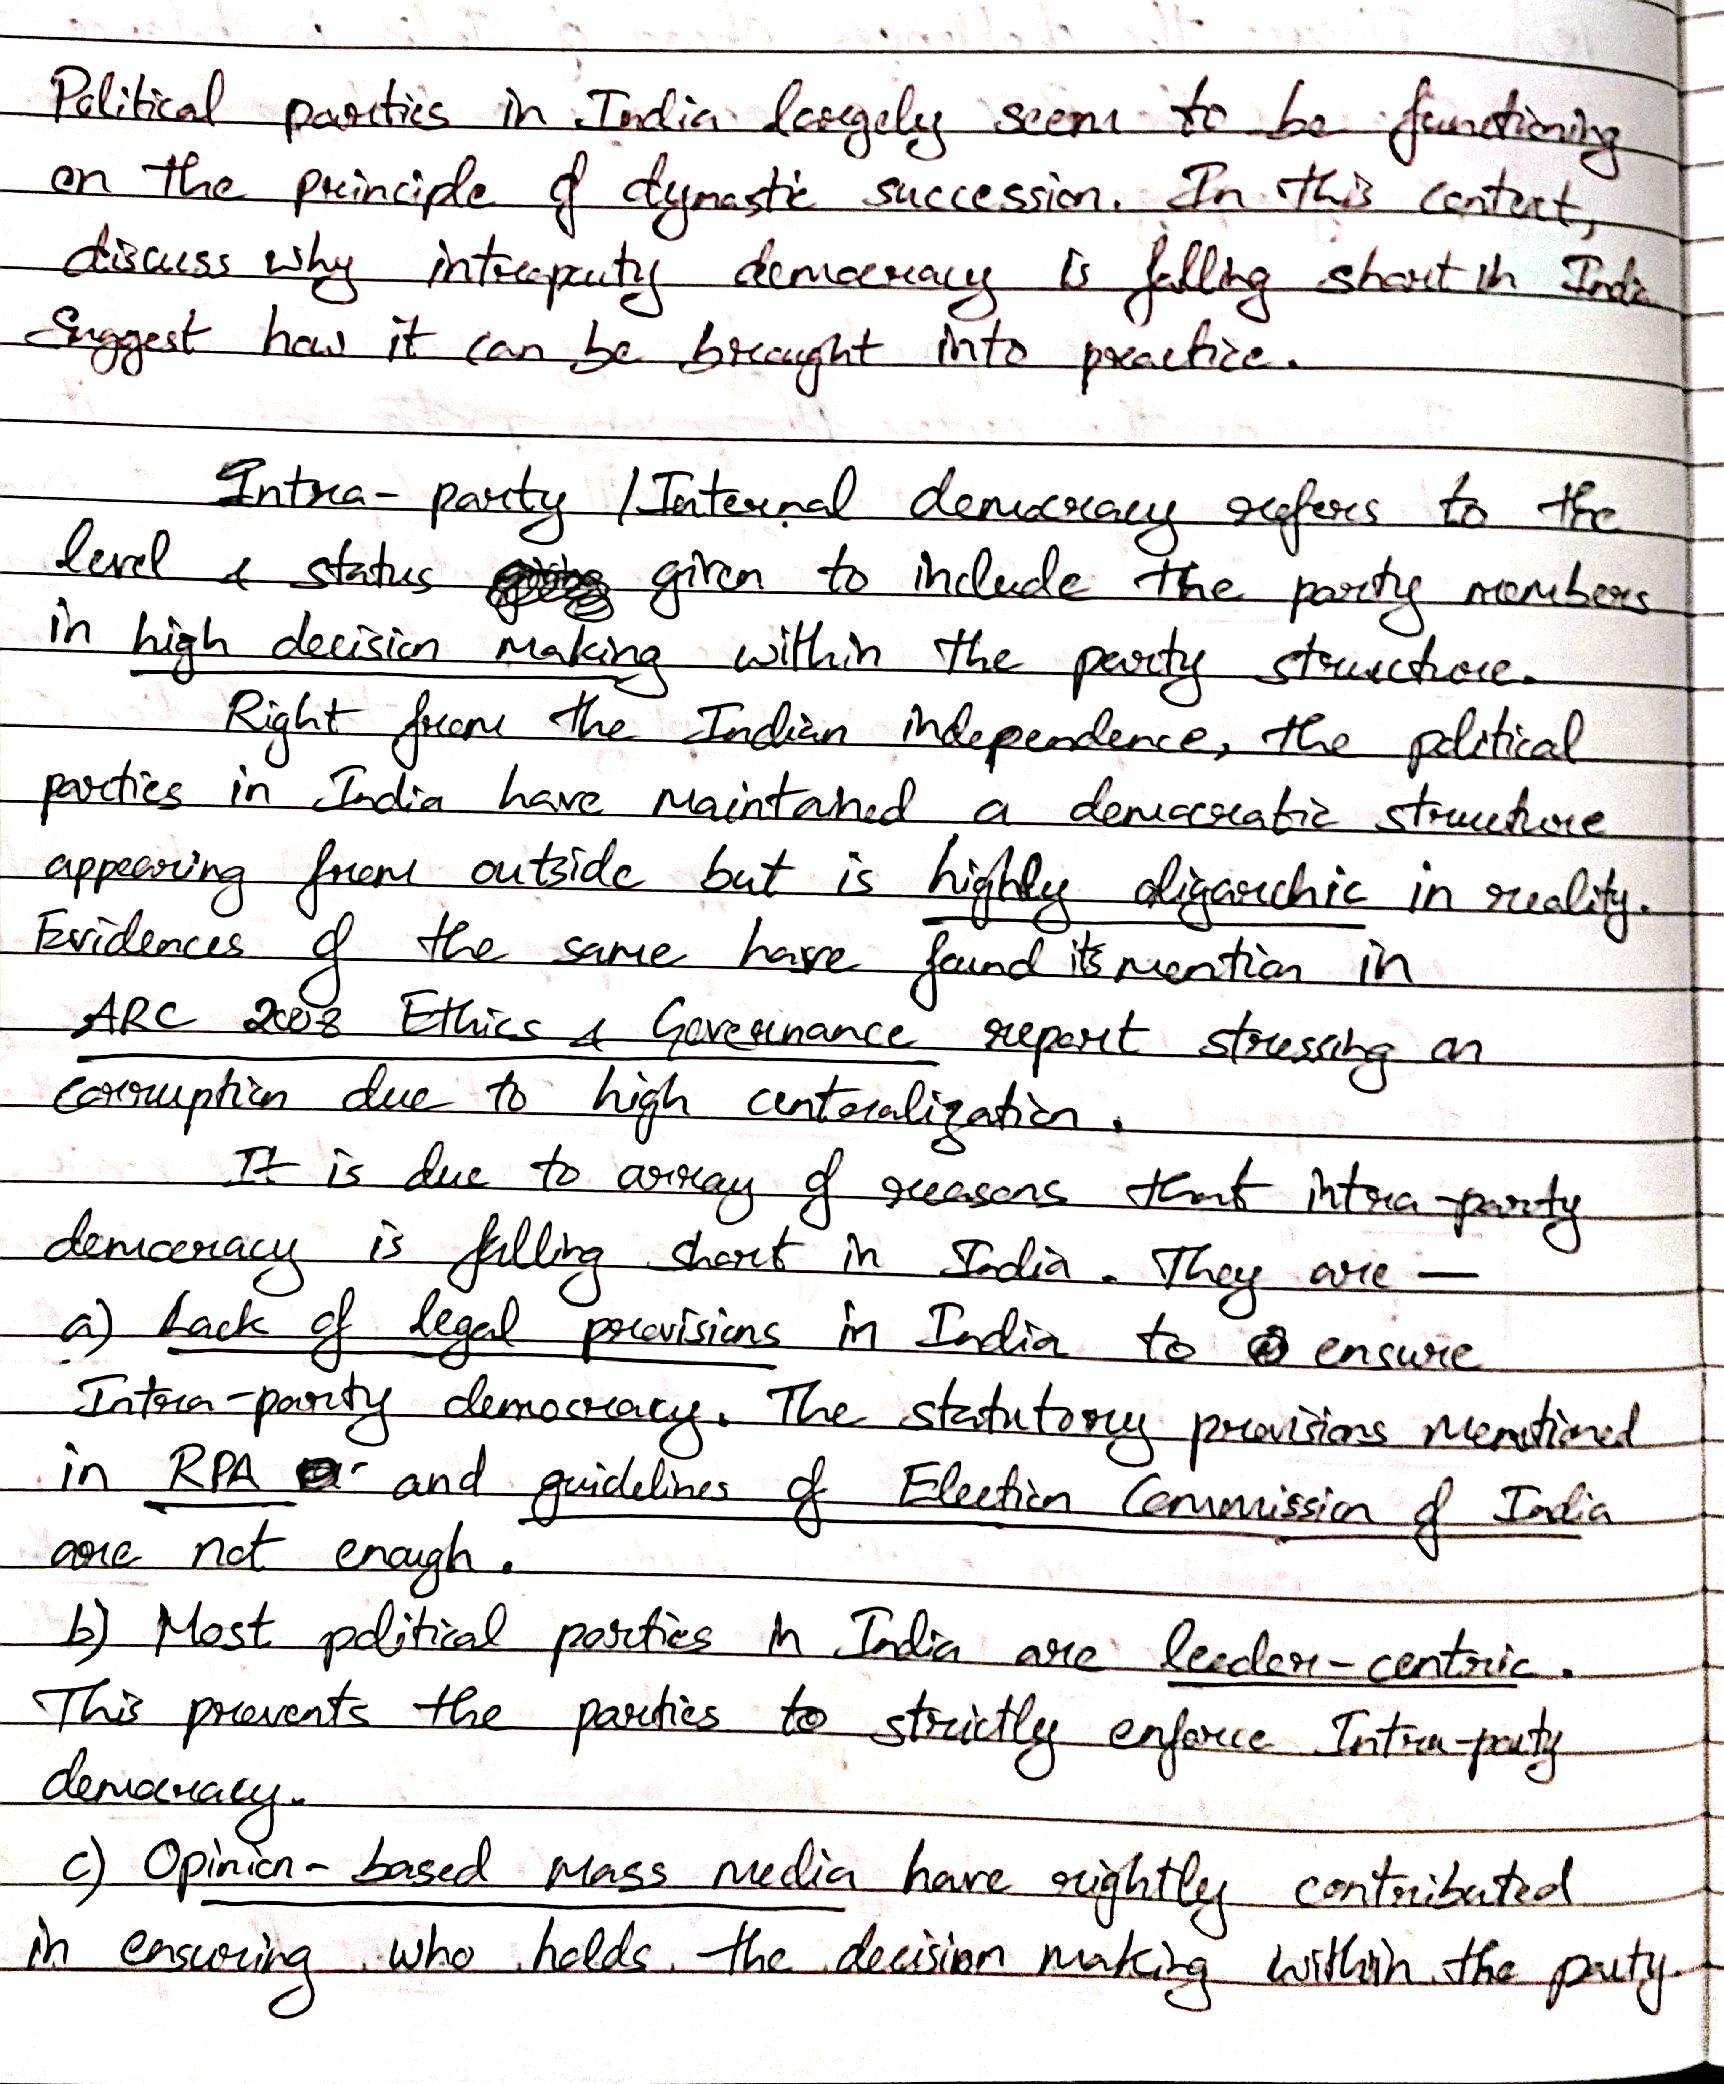 Political parties in India largely seem to be functioning
on the principle of dynastic succession. In this context,
discuss why intraparty democracy is falling short in India
Suggest how it can be brought into practice.
Intra-party / Internal democracy refers to the
level & status given to include the party members
in high decision making within the party structure.
Right from the Indian independence, the political
parties in India have maintained a democratic structure
appearing from outside but is highly oligarchic in reality.
Evidences of the same have found its mention in
ARC 2008 Ethics & Governance report stressing on
corruption due to high centralization.
It is due to array of reasons that intra-party
democracy is falling short in India. They are —
a) Lack of legal provisions in India to ensure
Intra-party democracy. The statutory provisions mentioned
in RPA and guidelines of Election Commission of India
are not enough.
b) Most political parties in India are leader-centric.
This prevents the parties to strictly enforce Intra-party
democracy.
c) Opinion-based mass media have rightly contributed
in ensuring who holds the decision making within the party.